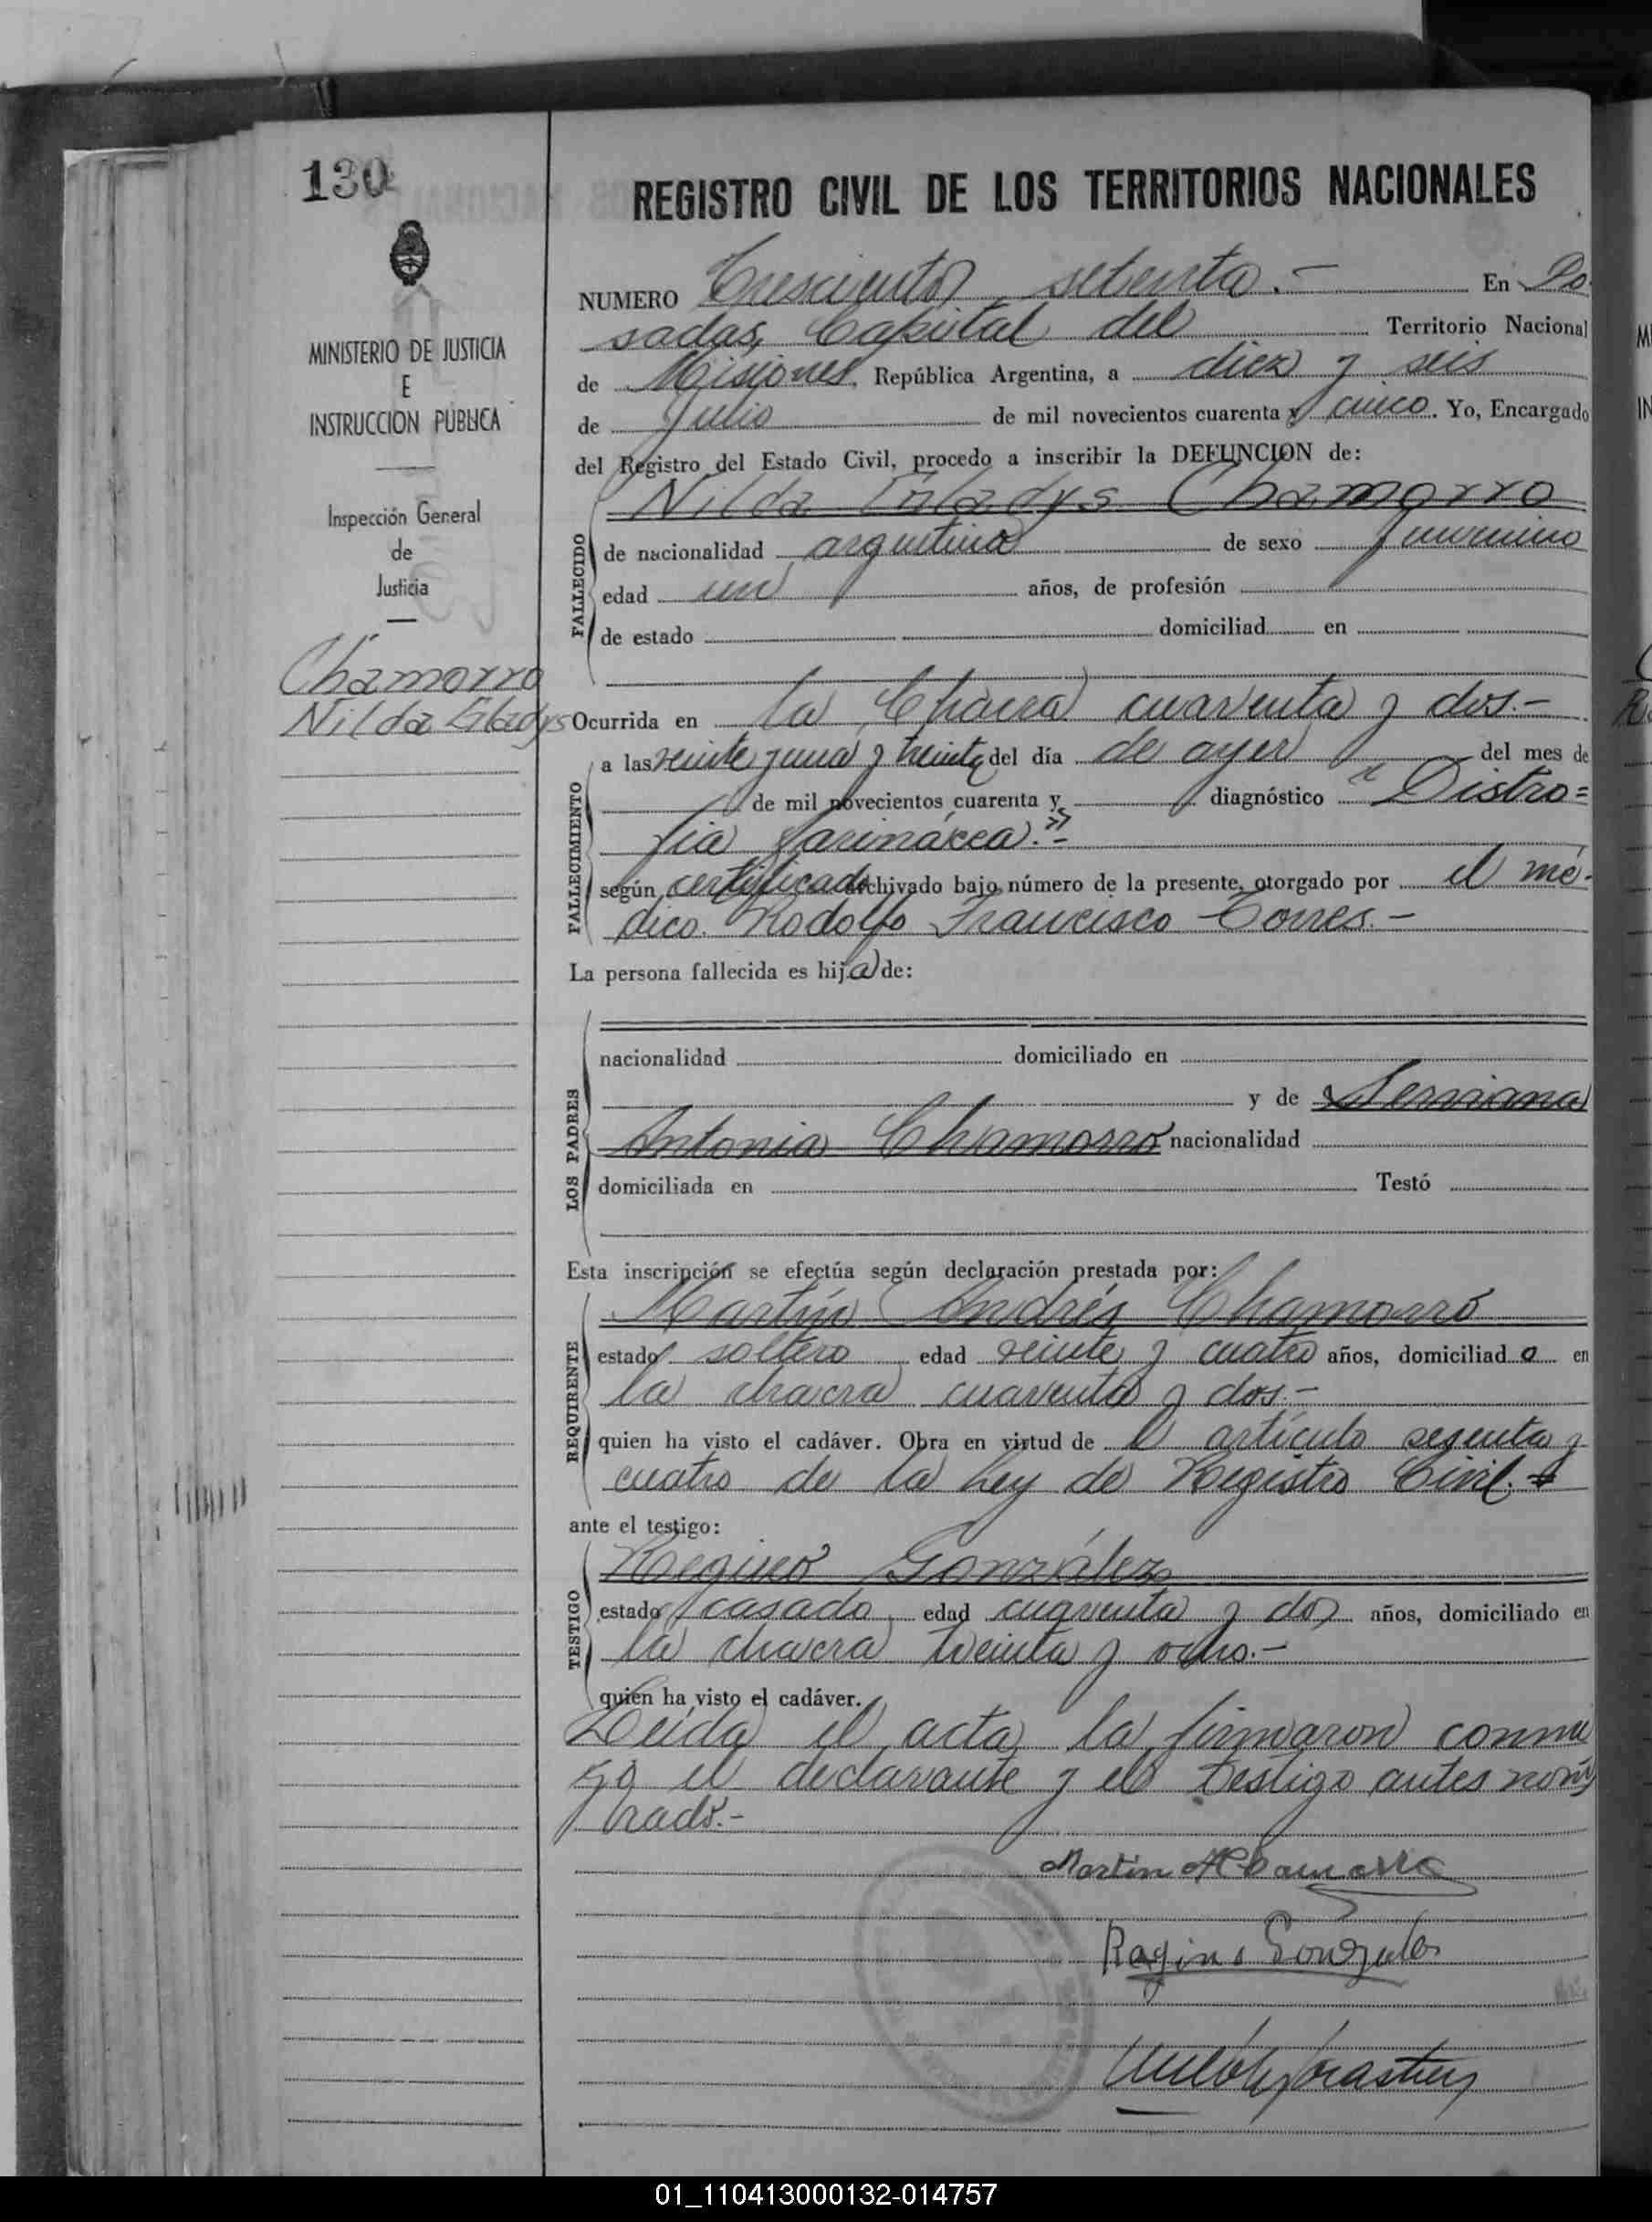 130
REGISTRO CIVIL DE LOS TERRITORIOS NACIONALES
MINISTERIO DE JUSTICIA
E
INSTRUCCION PUBLICA
Inspección General
de
Justicia
Chamorro
Nilda Gladys
NUMERO Trescientos setenta.- En Po-
sadas, Capital del Territorio Nacional
de Misiones, República Argentina, a diez y seis
de Julio de mil novecientos cuarenta y cinco. Yo, Encargado
del Registro del Estado Civil, procedo a inscribir la DEFUNCION de:
Nilda Gladys Chamorro
FALLECIDO
de nacionalidad argentina de sexo femenino
edad un años, de profesión
de estado domiciliad en
Ocurrida en la Chacra cuarenta y dos.-
FALLECIMIENTO
a las veinte y una y treinta del día de ayer del mes de
de mil novecientos cuarenta y diagnóstico "Distro=
fia farinácea".-
según certificado archivado bajo número de la presente, otorgado por el mé-
dico Rodolfo Francisco Torres.-
La persona fallecida es hija de:
LOS PADRES
nacionalidad domiciliado en
y de
Antonia Chamorro nacionalidad
domiciliada en Testó
Esta inscripción se efectúa según declaración prestada por:
Martín Andrés Chamorro
REQUIRENTE
estado soltero edad veinte y cuatro años, domiciliado en
la chacra cuarenta y dos.-
quien ha visto el cadáver. Obra en virtud de l artículo sesenta y
cuatro de la Ley de Registro Civil.-
ante el testigo:
Regino González
TESTIGO
estado casado edad cuarenta y dos años, domiciliado en
la chacra treinta y ocho.-
quien ha visto el cadáver.
Leída el acta la firmaron conmi
go el declarante y el testigo antes nom
brado.-
Martin A Chamorro
Ragino Gonzales
01_110413000132-014757